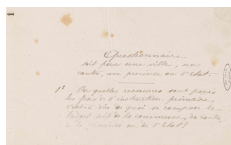 Questionnaire
soit pour une ville, un
canton, un province ou l'Etat.
1º Par quelles ressources sont payés
les frais d'instruction primaire,
c'est à dire de quoi se compose le
budget soit de la commune, du canton
de la province ou de l'Etat?